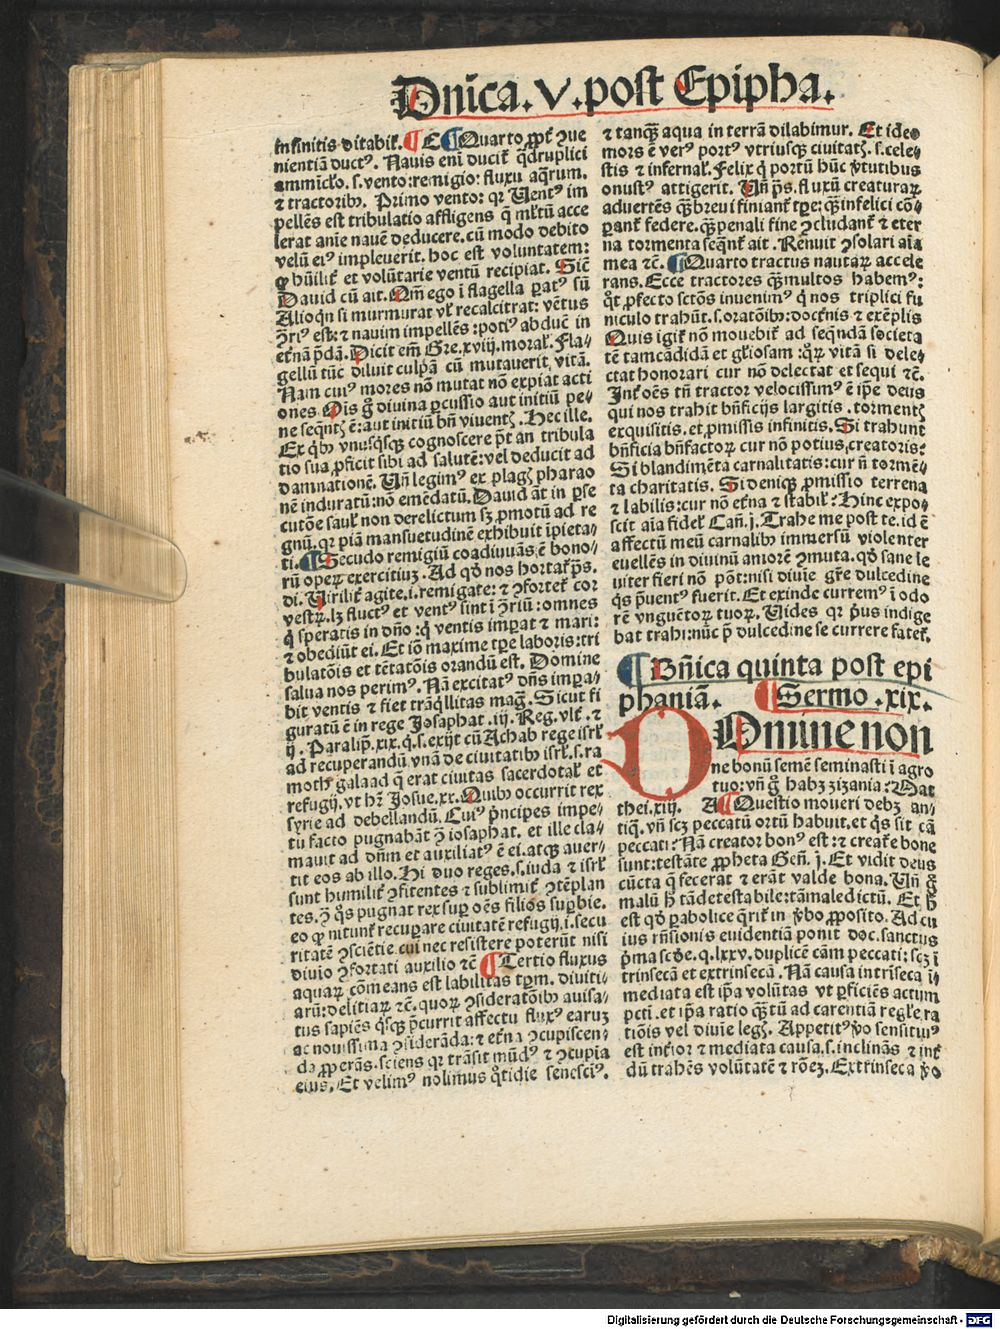 Dnīca. V. post Epipha.
infinitis ditabit̄. E Quarto ꝓpt̄ ꝯue
nientiā ductꝰ. Nauis eni ducit̄ q̄druplici
ammīclo. s. vento: remigio: fluxu aq̄rum.
⁊ tractoribꝰ. Primo vento: qꝛ Uentꝰ im
pellēs est tribulatio affligens q̄ ml̄tū acce
lerat anīe nauē deducere. cū modo debito
velū eiꝰ impleuerit. hoc est voluntatem:
ꝙ hūilit̄ et volūtarie ventū recipiat. Sic̄
Dauid cū ait. Qm̄ ego ī flagella ꝑatꝰ sū
Alioqn si murmurat vl̄ recalcitrat: vētus
ꝯriꝰ est: ⁊ nauim impellēs: potiꝰ abduc̄ in
et̄nā p̄dā. Dicit em̄ Gre. xviij. moral̄. Fla-
gellū tūc diluit culpā cū mutauerit vitā.
Nam cuiꝰ mores nō mutat nō expiat acti
ones Ois ḡ diuina ꝑcussio aut initiū pe-
ne seqntꝭ ē: aut initiū bn̄ viuentꝭ. Hec ille.
Ex q̄bꝰ vnusqsꝗ cognoscere p̄t an tribula
tio sua ꝓficit sibi ad salutē: vel deducit ad
damnationē. Un̄ legimꝰ ex plagꝭ pharao
nē induratū: nō emēdatū. Dauid āt in ꝑse
cutōe saul̄ non derelictum sꝫ ꝓmotū ad re
gnū. qꝛ piā mansuetudinē exhibuit īpieta-
ti. Secūdo remigiū coadiuuās ē bono-
rū operꝝ exercitiuꝫ. Ad qd̄ nos hortat̄ ps.
di. Uirilit̄ agite. i. remigate: ⁊ ꝯfortet̄ cor
vestꝝ. lꝫ fluctꝰ et ventꝰ sint ī ꝯriū: omnes
q̄ speratis in dn̄o: q̄ ventis imꝑat ⁊ mari:
⁊ obediūt ei. Et iō maxime tꝑe laboris: tri
bulatōis et tētatōis orandū est. Domine
salua nos perimꝰ. Nā excitatꝰ dn̄s impa-
bit ventis ⁊ fiet trāq̄llitas maḡ. Sicut fi
guratū ē in rege Josaphat. iij. Reg. vlt̄. ⁊
ij. Paralip̄. xix. q̄. s. exijt cū Achab rege isrl̄
ad recuperandū vnā de ciuitatibꝰ isrl̄. s. ra
moth galaad q̄ erat ciuitas sacerdotal̄ et
refugij. vt hr̄ Josue. xx. Quibꝰ occurrit rex
syrie ad debellandū. Cuiꝰ p̄ncipes impe-
tu facto pugnabāt ꝯ iosaphat. et ille cla-
mauit ad dn̄m et auxiliatꝰ ē ei. atqꝫ auer-
tit eos ab illo. Hi duo reges. s. iuda ⁊ isrl̄
sunt humilit̄ ꝯfitentes ⁊ sublimit̄ ꝯtēplan
tes. ꝯ q̄s pugnat rex suꝑ oēs filios suꝑbie.
eo ꝙ nitunt̄ recuꝑare ciuitatē refugij. i. secu
ritatē ꝯsciētie. cui nec resistere poterūt nisi
diuio ꝯfortati auxilio ⁊c̄ Tertio fluxus
aquarꝝ cōmeans est labilitas tꝑm. diuiti-
arū: delitiarꝝ ⁊c. quoꝝ ꝯsideratōibꝰ auisa-
tus sapiēs q̄sꝗ p̄currit affectu fluxꝰ earuꝫ
ac nouissima ꝯsiderāda: ⁊ et̄na ꝯcupiscen-
da ꝓperās. sciens qꝛ trāsit mūdꝰ ⁊ ꝯcupia
eius. Et velimꝰ nolimus q̄tidie senescīꝰ.
⁊ tanq̄ꝫ aqua in terrā dilabimur. Et ideo
mors ē verꝰ portꝰ vtriusqꝫ ciuitatꝭ. s. cele-
stis ⁊ infernal̄. Felix q̄ portū hūc v̄tutibus
onustꝰ attigerit. Un̄ ps. fluxū creaturaꝝ
aduertēs q̄ꝫ breui finiant̄ tꝑe: q̄ꝫ infelici cō-
ꝑant̄ federe. q̄ꝫ penali fine ꝯcludant̄ ⁊ eter
na tormenta seq̄nt̄ ait. Renuit ꝯsolari aīa
mea ⁊c̄. Quarto tractus nautaꝝ accele
rans. Ecce tractores q̄ꝫ multos habemꝰ:
q̄t ꝓfecto sctōs inuenimꝰ q̄ nos triplici fu
niculo trahūt. s. oratōibꝰ: doctnis ⁊ exēplis
Quis igit̄ nō mouebit̄ ad seq̄ndā societa
tē tam cādidā et gl̄iosam: q̄ꝝ vitā si dele-
ctat honorari cur nō delectat et sequi ⁊c̄.
Int̄ oēs tn̄ tractor velocissimꝰ ē ip̄e deus
qui nos trahit bn̄ficijs largitis. tormentꝭ
exquisitis. et ꝓmissis infinitis. Si trahunt
bn̄ficia bn̄factoꝝ cur nō potius creatoris:
Si blandimēta carnalitatis: cur n̄ tormē-
ta charitatis. Si deniqꝫ ꝓmissio terrena
⁊ labilis: cur nō et̄na ⁊ stabil̄? Hinc expo-
scit aīa fidel̄ Cañ. j. Trahe me post te. id ē
affectū meū carnalibꝰ immersū violenter
euellēs in diuinū amorē ꝯmuta. qd̄ sane le
uiter fieri nō pōt: nisi diuie gr̄e dulcedine
q̄s p̄uentꝰ fuerit. Et exinde curremꝰ ī odo
rē vnguētoꝝ tuoꝝ. Uides qꝛ p̄us indige
bat trahi: nūc p̄ dulcedine se currere fatet̄.
Dn̄ica quinta post epi
phaniā. Sermo. xix.
DOmine non
ne bonū semē seminasti ī agro
tuo: vn̄ ḡ habꝫ zizania: Mat
thei. xiij. A Questio moueri debꝫ an-
tiq̄. vn̄ scꝫ peccatū ortū habuit. et q̄s sit cā
peccati? Nā creator bonꝰ est: ⁊ create bone
sunt: testāte ꝓpheta Gen̄. j. Et vidit deus
cūcta q̄ fecerat ⁊ erāt valde bona. Un̄ ḡ
malū h̄ tā detestabile: tā maledictū. Et h̄
est qd̄ ꝑabolice q̄rit̄ in v̄bo ꝓposito. Ad cu
ius rn̄sionis euidentiā ponit doc. sanctus
p̄ma scde. q. lxxv. duplicē cām peccati: scꝫ ī
trinsecā et extrinsecā. Nā causa intrīseca ī-
mediata est ip̄a volūtas vt ꝑficiēs actum
pcti. et ip̄a ratio q̄ꝫtū ad carentiā regl̄e ra
tiōis vel diuie legꝭ. Appetitꝰ v̄o sensituꝰ
est int̄ior ⁊ mediata causa. s. inclinās ⁊ int̄
dū trahēs volūtatē ⁊ rōeꝫ. Extrinseca v̄o
Digitalisierung gefördert durch die Deutsche Forschungsgemeinschaft - DFG